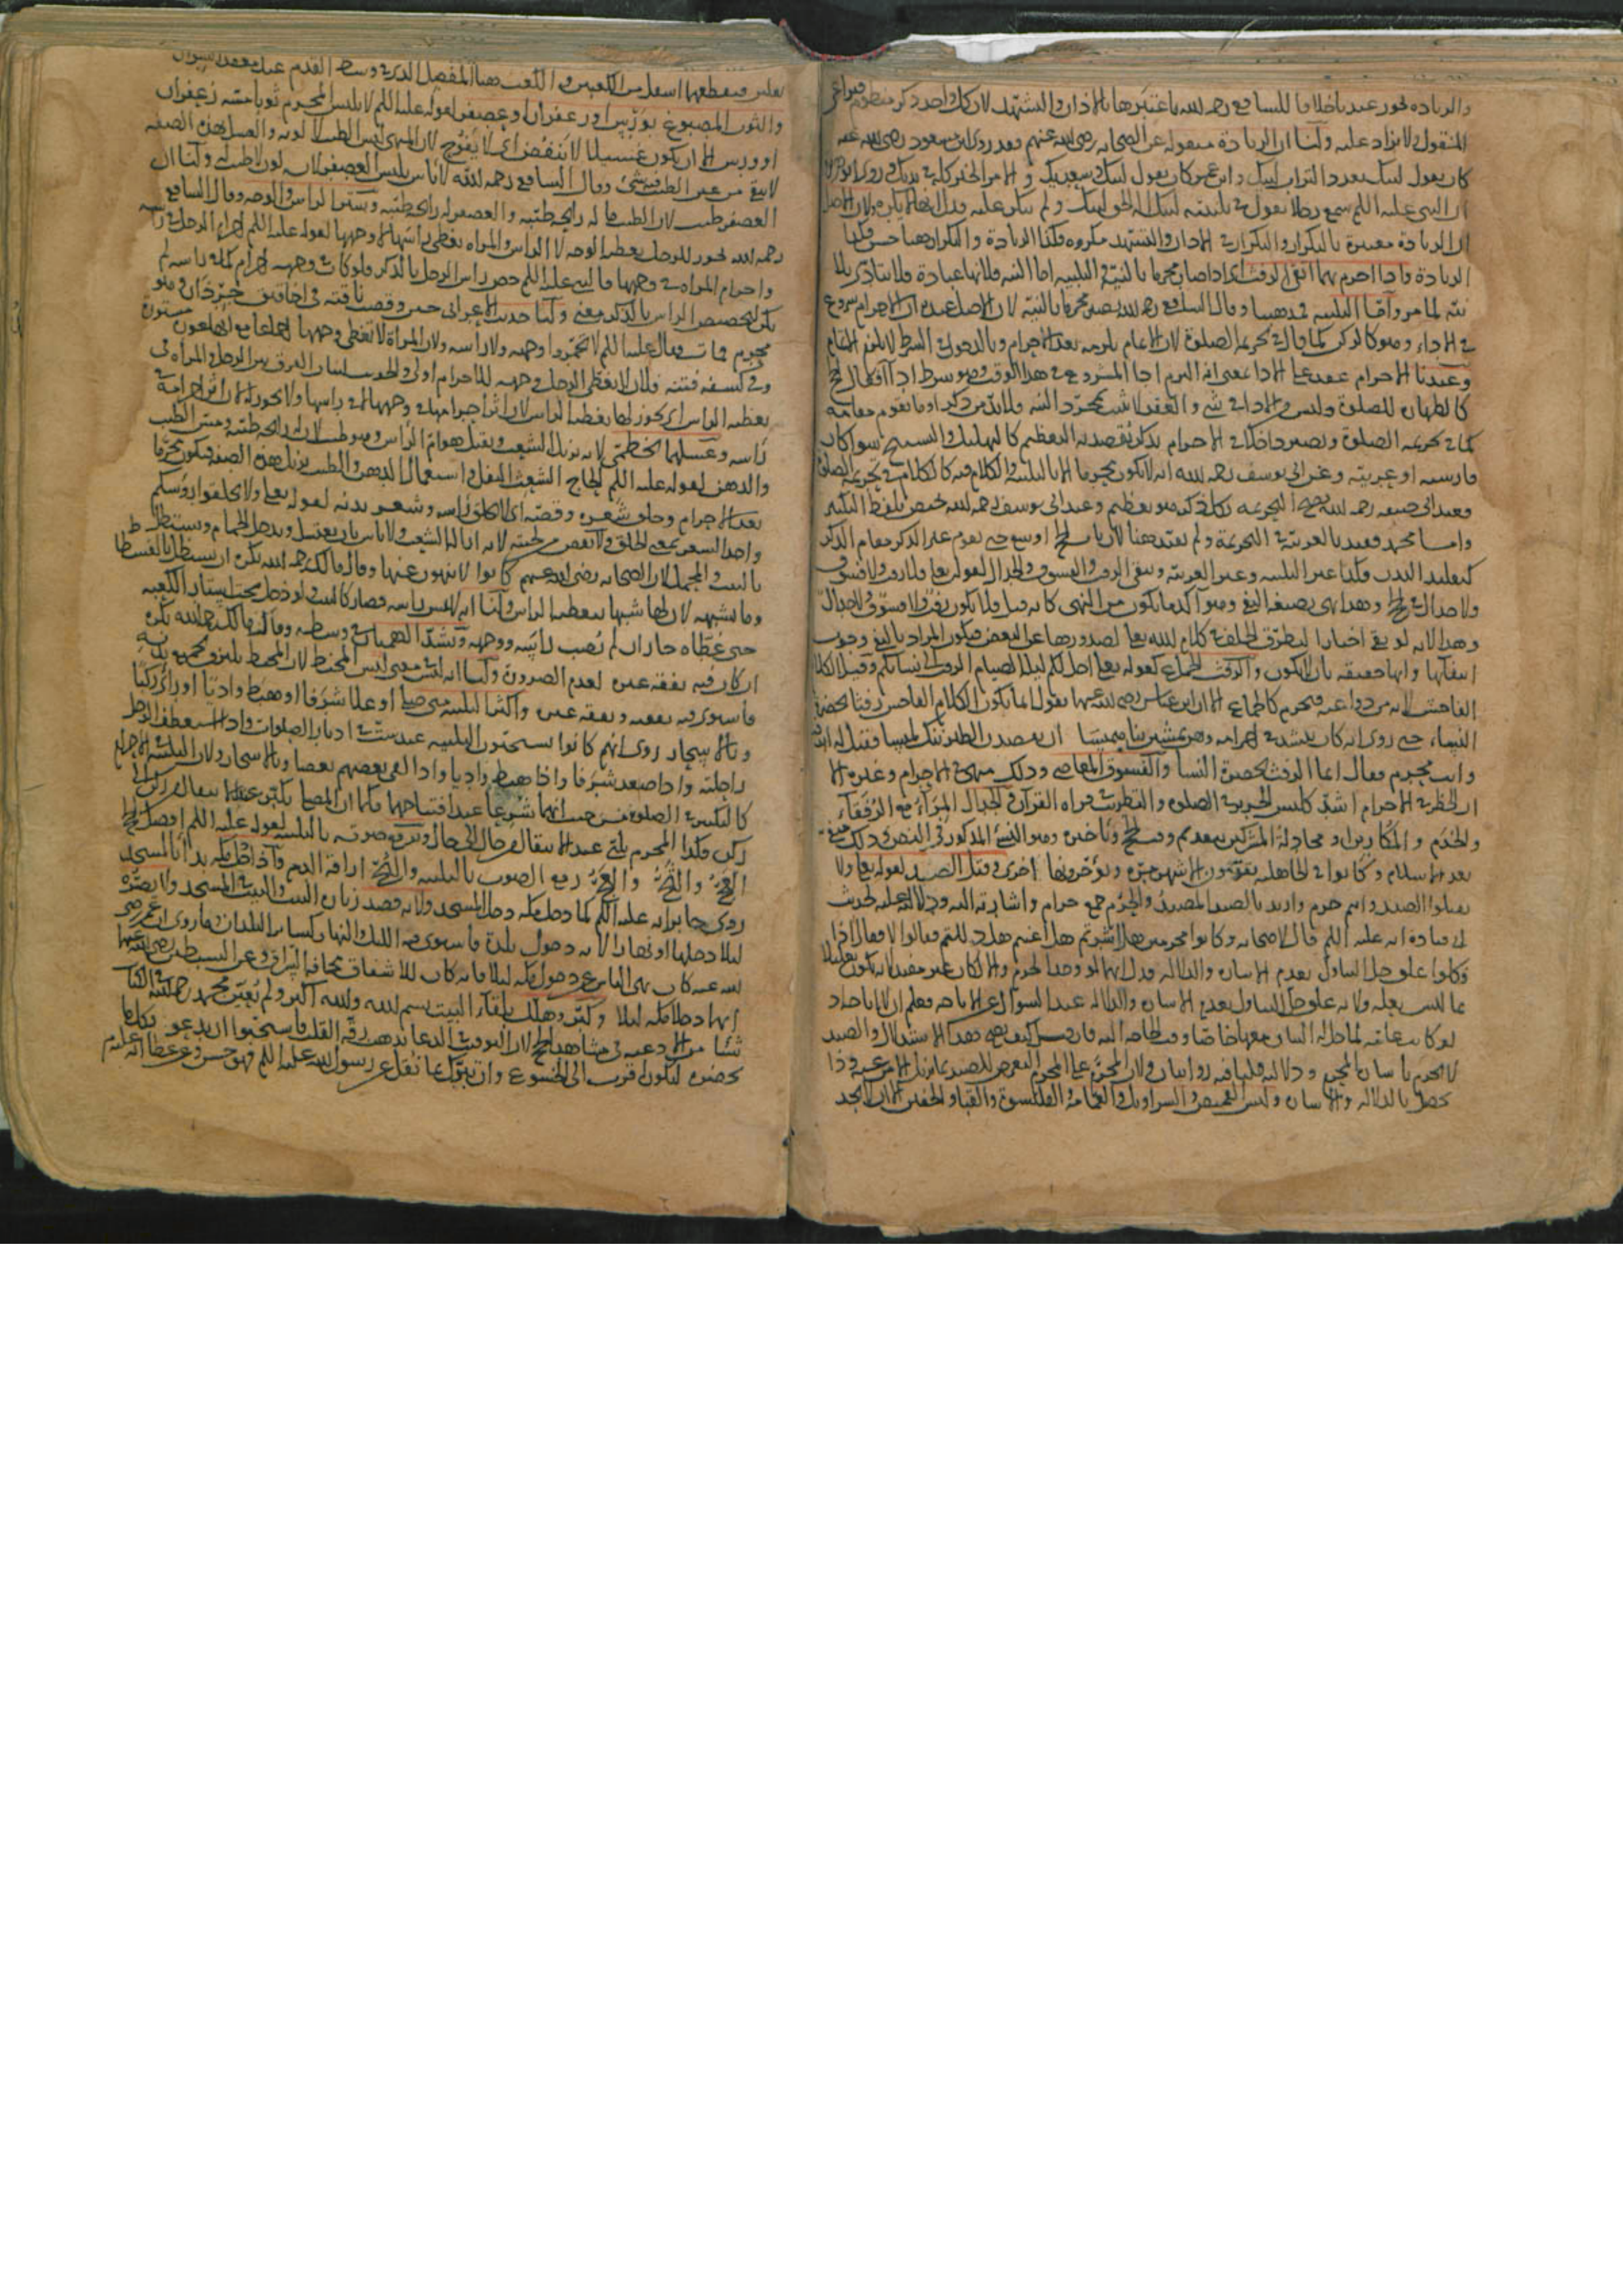 والزيادة تجوز عندنا خلافا للشافعي رحمه الله باعتبرها بالاذان والتشهد لان كل واحد ذكر منظوم فيراعى
المنقول لا يزاد عليه ولنا ان الزيادة منقوله عن الصحابه رضي الله عنهم فقد روى ابن مسعود رضي الله عنه
كان يقول لبيك بعدد التراب لبيك وابن عمر كان يقول لبيك وسعديك والخير كله في يديك وروى
ان النبي عليه السلم سمع رجلا يقول في تلبيته لبيك اله الحق لبيك ولم ينكر عليه فدل انها لا يكره ولان الاصل
ان الزيادة معتبرة بالتكرار والتكرار في الاذان والتشهد مكروه فكذا الزيادة والتكرار هنا حسن فكذا
الزيادة فاذا احرم بهما اتقى الرفث اى اذا صار محرما بالنية والتلبيه اما النيه فلانها عبادة فلا يتادى بلا
نيه لما مر واما التلبيه فمذهبنا وقال الشافعي رحمه الله يصير محرما بالنية لان الاصل عنده ان الاحرام شروع
في الاداء وهو كالركن كما قال في تحريمه الصلوة لان الاتمام يلزمه بعد الاحرام وبالدخول في الشرط لا يلزم الاتمام
وعندنا الاحرام عقد على الاداء بمعنى انه التزم اداء المشروع في هذا الوقت وهو شرط اداء افعال الحج
كالطهارة للصلوة وليس والاداء في شي والعقد لا يثبت بمجرد النيه فلا بد من ذكر او ما يقوم مقامه
كما في تحريمه الصلوة ويصير داخلا في الاحرام بذكر يقصد به التعظيم كالتهليل والتسبيح سوا كان
فارسيه او عربيه وعن ابي يوسف رحمه الله انه لا يكون محرما الا بالتلبيه والكلام فيه كالكلام في تحريمه الصلوة
فعند ابي حنيفه رحمه الله يصح التحريمه بكل ذكر هو تعظيم وعند ابي يوسف رحمه الله يختص بلفظ التكبير
واما محمد فقيد بالعربية في التحريمة ولم يقيد هنا لان باب الحج اوسع حتى يقوم غير الذكر مقام الذكر
كتقليد البدن فكذا غير التلبيه وغير العربيه ويتقى الرفث والفسوق والجدال لقوله تعالى فلا رفث ولا فسوق
ولا جدال في الحج وهذا نهي بصيغه النفي وهو آكد ما يكون من النهي كانه قيل فلا يكون رفث ولا فسوق ولا جدال
وهذا لانه لو بقي اخبارا لتطرق الخلف في كلام الله تعالى لصدورها عن البعض فيكون المراد بالنفي وجوب
انتفائها وانها حقيقه بان لا يكون والرفث الجماع كقوله تعالى احل لكم ليلة الصيام الرفث الى نسائكم وقيل الكلام
الفاحش لانه من دواعيه فيحرم كالجماع الا ان ابن عباس رضي الله عنهما يقول انما يكون الكلام الفاحش رفثا بحضرة
النساء، حتى روى انه كان ينشد في احرامه وهن يمشين بنا هميسا ان يصدق الطير ننك لميسا فقيل له اترفث
وانت محرم فقال انما الرفث بحضرة النسا والفسوق المعاصي وذلك منهي في الاحرام وغيره الا
ان الحظر في الاحرام اشد كلبس الحرير في الصلوة والتطريب في قراة القرآن والجدال المراء مع الرفقاء
والخدم والمكارين او مجادلة المشركين بتقديم وقت الحج وتاخيره وهو النسئ المذكور في النص وذلك
بعد الاسلام وكانوا في الجاهليه يقدمون الاشهر مرة ويؤخرونها اخرى وقتل الصيد لقوله تعالى ولا
تقتلوا الصيد وانتم حرم واريد بالصيد المصيد والحرم جمع حرام واشارته اليه ودلالته عليه لحديث
ابي قتادة انه عليه السلم قال لاصحابه وكانوا محرمين هل اشرتم هل اعنتم هل دللتم فقالوا لا فقال اذا
فكلوا علق حل التناول بعدم الاشارة والدلالة فدل انها لو وجدا لحرم والا لكان غير مفيد
لو كانت عامة لما حل له
لانه محرم باشارة المحرم ودلالته فلنا فيه روايتان ولان المحرم على المحرم التعرض للصيد بما يزيل الامن عنه وذا
يحصل بالدلاله والاشارة ولبس القميص والسراويل والعمامة والقلنسوة والقباء والخفين الا ان لا يجد
نعلين فيقطعهما اسفل من الكعبين والكعب هنا المفصل الذي في وسط القدم عند معقد الشراك
والثوب المصبوغ بورس او زعفران او عصفر لقوله عليه السلم لا يلبس المحرم ثوبا مسه زعفران
او ورس الا ان يكون غسيلا لا ينفض اى لا يفوح لان المنهي لبس الطيب لا لونه والغسل بهذه الصفه
لا يبقى من عين الطيب شئ وقال الشافعي رحمه الله لا باس بلبس العصفر لانه لون لا طيب له ولنا ان
العصفر طيب لان الطيب ما له رايحه طيبه والعصفر له رايحه طيبه وستر الراس والوجه وقال الشافعي
رحمه الله يجوز للرجل تغطيه الوجه لا الراس والمراه تغطي راسها لا وجهها لقوله عليه السلم احرام الرجل في راسه
واحرام المراه في وجهها قال النبي عليه السلم خص راس الرجل بالذكر فلو كان وجهه احرام كما في راسه لم
يكن لتخصيص الراس بالذكر معنى ولنا حديث الاعرابي حين وقصت ناقته في اخاقيق جرذان وهو
محرم فمات فقال عليه السلم لا تخمروا وجهه ولا راسه ولان المراة لا تغطي وجهها اجماعا مع انها عورة مستورة
وفي كشفه فتنه فلان لا يغطي الرجل وجهه للاحرام اولى والحديث لبيان الفرق بين الرجل والمراه في
تغطيه الراس اى يجوز لها تغطيه الراس لان اثر احرامها في وجهها لا في راسها
راسه وغسلهما بخطمي لانه يزيل الشعث ويقتل هوام الراس وهو طيب لان له رايحه طيبه ومس الطيب
والدهن لقوله عليه السلم الحاج الشعث التفل واستعمال الدهن والطيب يزيل هذه الصفه فيكون محرما
بعد الاحرام وحلق شعره وقصه اى لا يحلق راسه وشعر بدنه لقوله تعالى ولا تحلقوا رؤسكم
واخذ الشعر بمعنى الحلق ولا يقص من لحيته لانه ازالة الشعث ولا باس بان يغتسل ويدخل الحمام ويستظل
بالبيت والمحمل لان الصحابه رضي الله عنهم كانوا لا ينهون عنها وقال مالك رحمه الله يكره ان يستظل بالفسطاط
وما يشبهه لان لها شبها بتغطيه الراس ولنا انه لا يمس راسه فصار كالبيت ولو دخل تحت استار الكعبه
حتى غطاه جاز ان لم تصب راسه ووجهه وشد الهميان في وسطه وقال مالك رحمه الله يكره
ان كان فيه نفقه غيره لعدم الضرورة ولنا انه ليس في معنى لبس المخيط لان المحيط يلتزق بجميع بدنه
فاستوى فيه نفقته ونفقه غيره واكثر التلبيه متى صلى او علا شرفا او هبط واديا او لقي ركبا
وبالاسحار روى انهم كانوا يستحبون التلبيه عند ست في ادبار الصلوات واذا استعطف الرجل
راحلته واذا صعد شرفا واذا هبط واديا واذا لقي بعضهم بعضا وبالاسحار ولان التلبيه في الاحرام
كالتكبير في الصلوة من حيث انهما شرعا عند افتتاحهما فكما ان المصلي يكبر عند الانتقال من ركن الى
ركن فكذا المحرم يلبي عند الانتقال من حال الى حال ويرفع صوته بالتلبيه لقوله عليه السلم افضل الحج
العج والثج والعج رفع الصوت بالتلبيه والثج اراقة الدم واذا دخل مكه بدا بالمسجد
روى جابر انه عليه السلم كما دخل مكه دخل المسجد ولانه قصد زيارة البيت والبيت في المسجد ولا يضره
ليلا دخلها او نهارا لانه دخول بلدة فاستوى فيه الليل والنهار كسائر البلدان وما روى ان عمر رضي
الله عنه كان نهى الناس عن دخول مكه ليلا فانه كان للاشفاق مخافه السراق وعن السبطين رضي الله عنهما
انهما دخلا مكه ليلا وكبر وهلل بلقاء البيت بسم الله والله اكبر ولم يعين محمد رحمه الله
شيئا من الادعيه في مشاهد الحج لان التوقيت في الدعا يذهب رقة القلب فاستحبوا ان يدعو بكل ما
يحضره ليكون اقرب الى الخشوع وان تبرك بما نقل عن رسول الله عليه السلم فهو حسن وعن عطاء انه عليه السلم